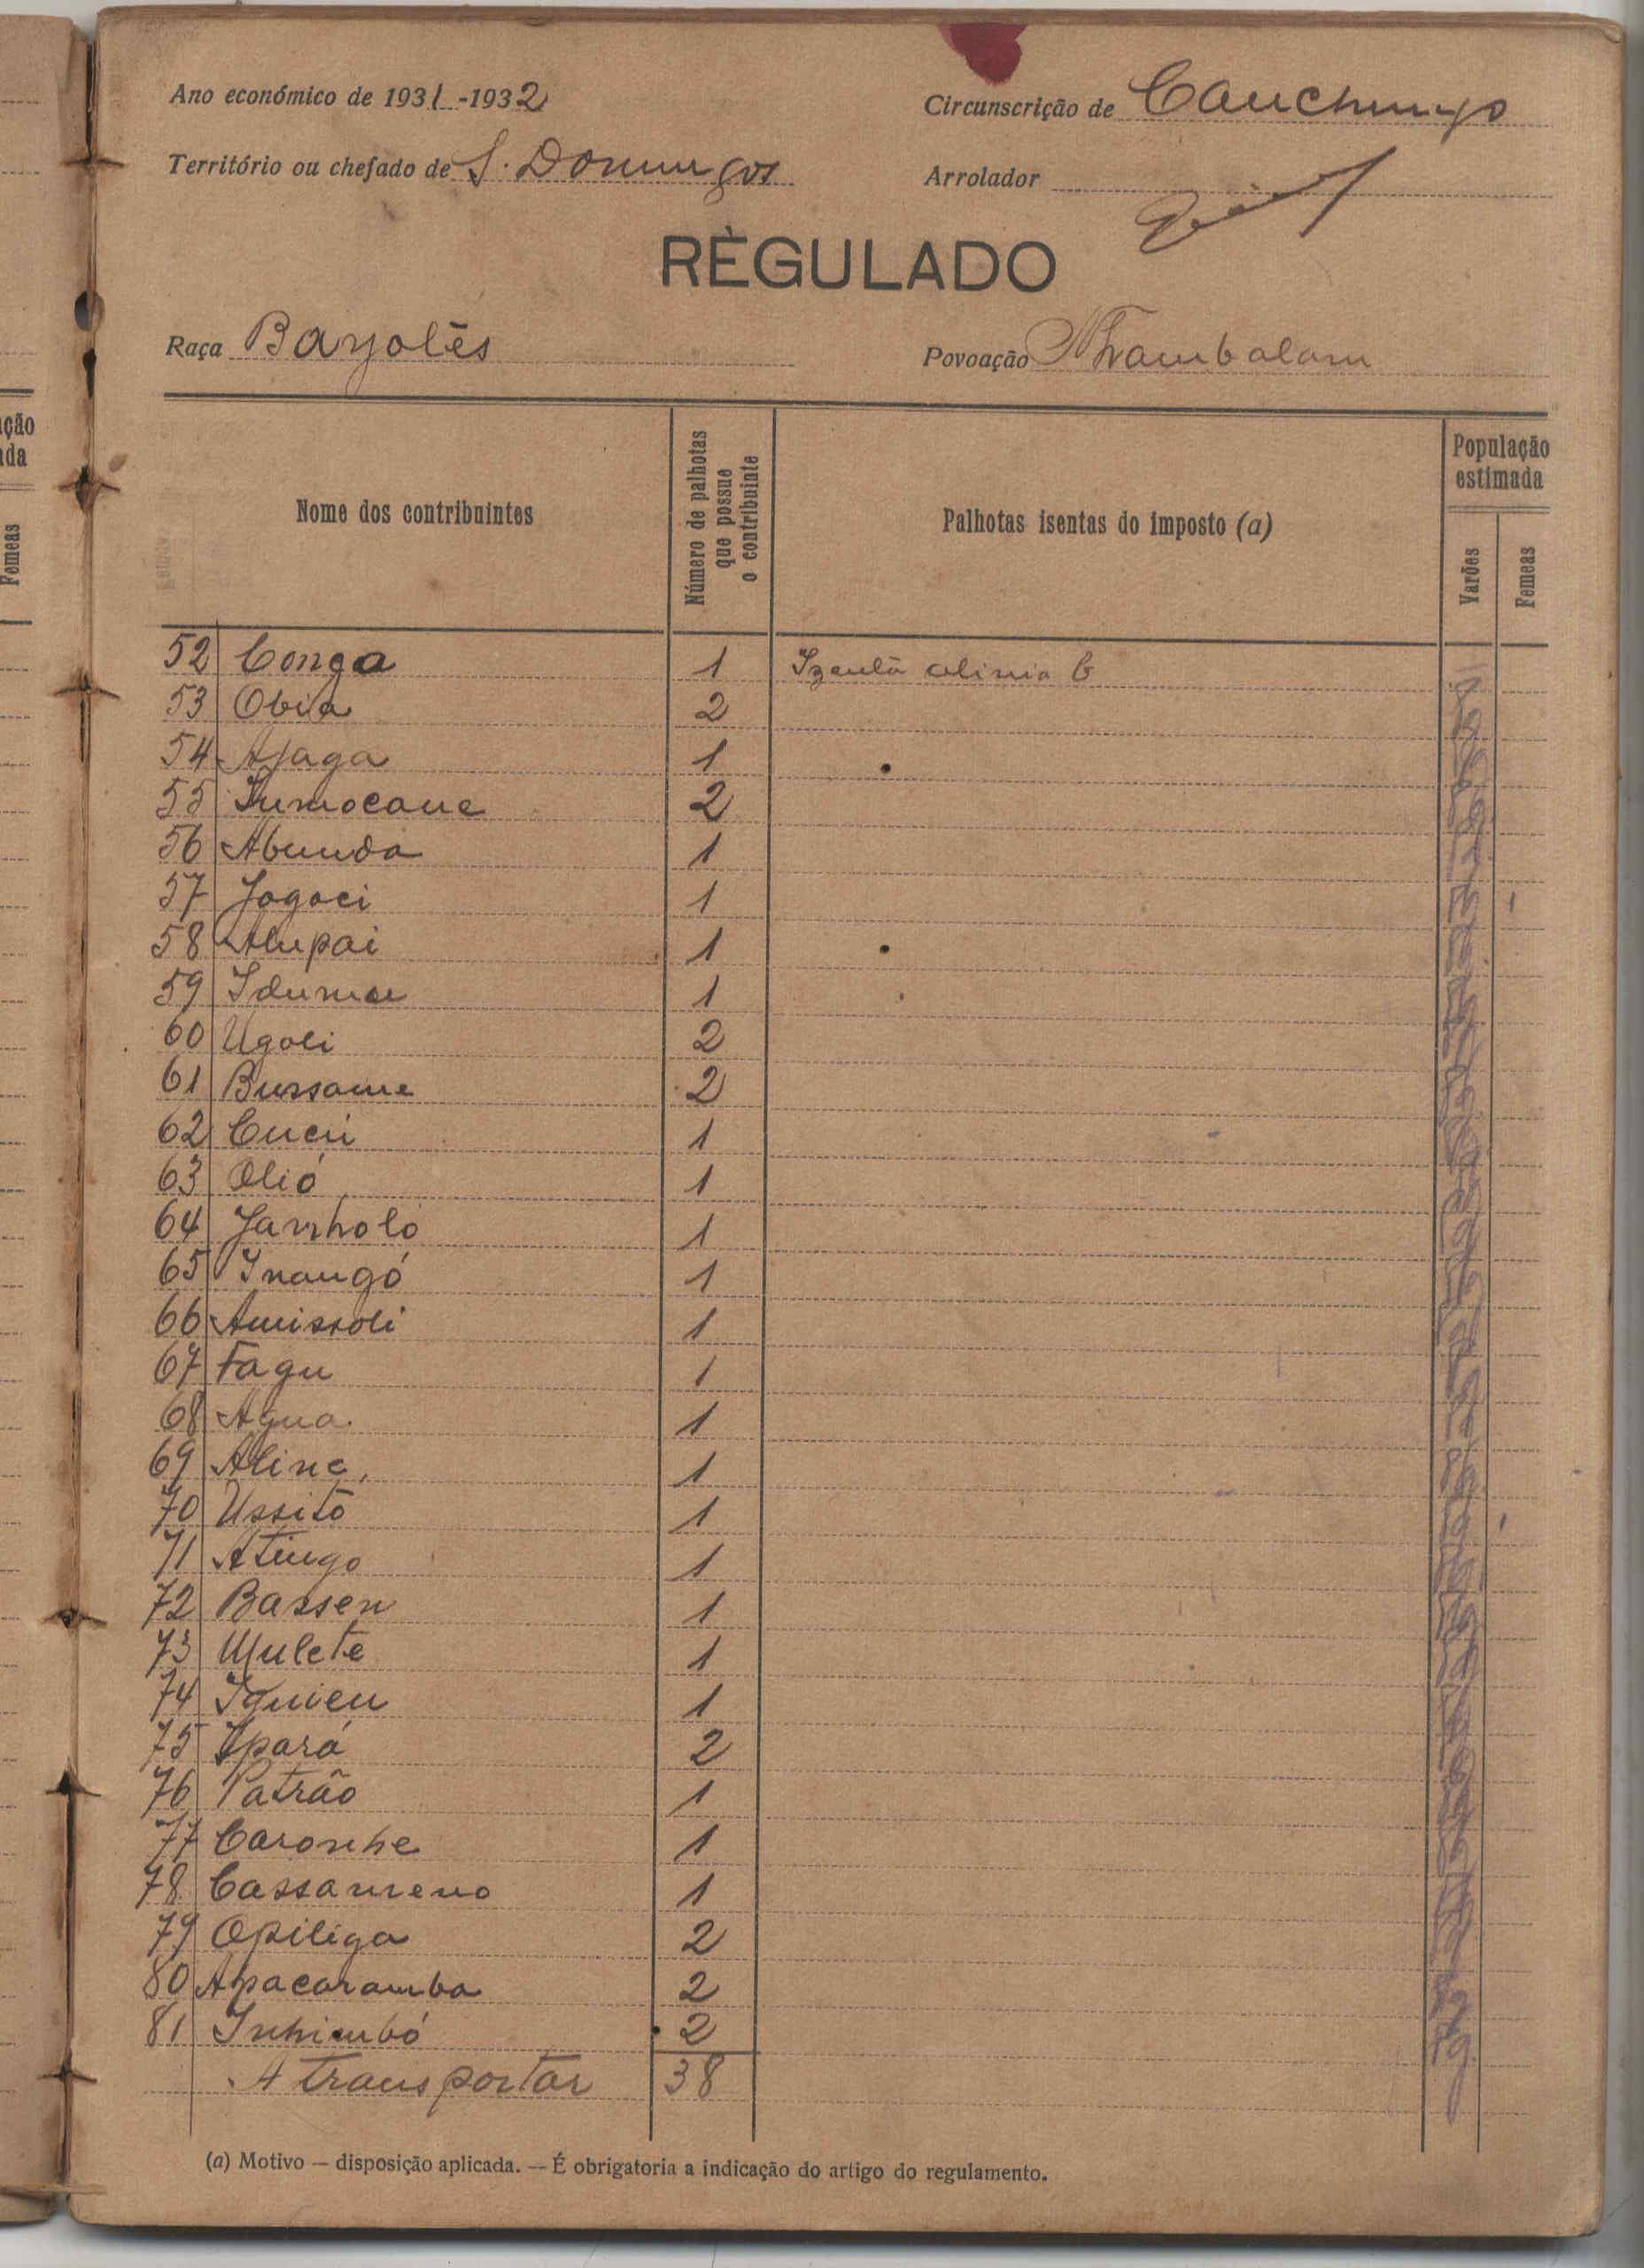 Ano económico de 1931-1932
Circunscrição de Cauchungo
Território ou chefado de S. Domingos
Arrolador
RÈGULADO
Raça Bayotês
Povoação
Nome dos contribuintes
Número de palhotas que possue o contribuinte
Palhotas isentas do imposto (a)
População estimada
Varões
Femeas
52 Conga 1 Izenta alinia b
53 Obia 2
54 Ajaga 1
55 2
56 Abunda 1
57 Jogoci 1
58 Alupai 1
59 1
60 Ugoli 2
61 Bussame 2
62 Cucú 1
63 Olió 1
64 Janholó 1
65 Inangó 1
66 Amissoli 1
67 Fagu 1
68 Agua 1
69 Aline 1
70 Ussitó 1
71 Atingo 1
72 Bassen 1
73 Mulete 1
74 Iquieu 1
75 Ipará 2
76 Patrão 1
77 Caronhe 1
78 Cassameno 1
79 Opiliga 2
80 Apacaramba 2
81 Inhimbó 2
A transportar 38
(a) Motivo — disposição aplicada. — É obrigatoria a indicação do artigo do regulamento.
ção
da
Femeas